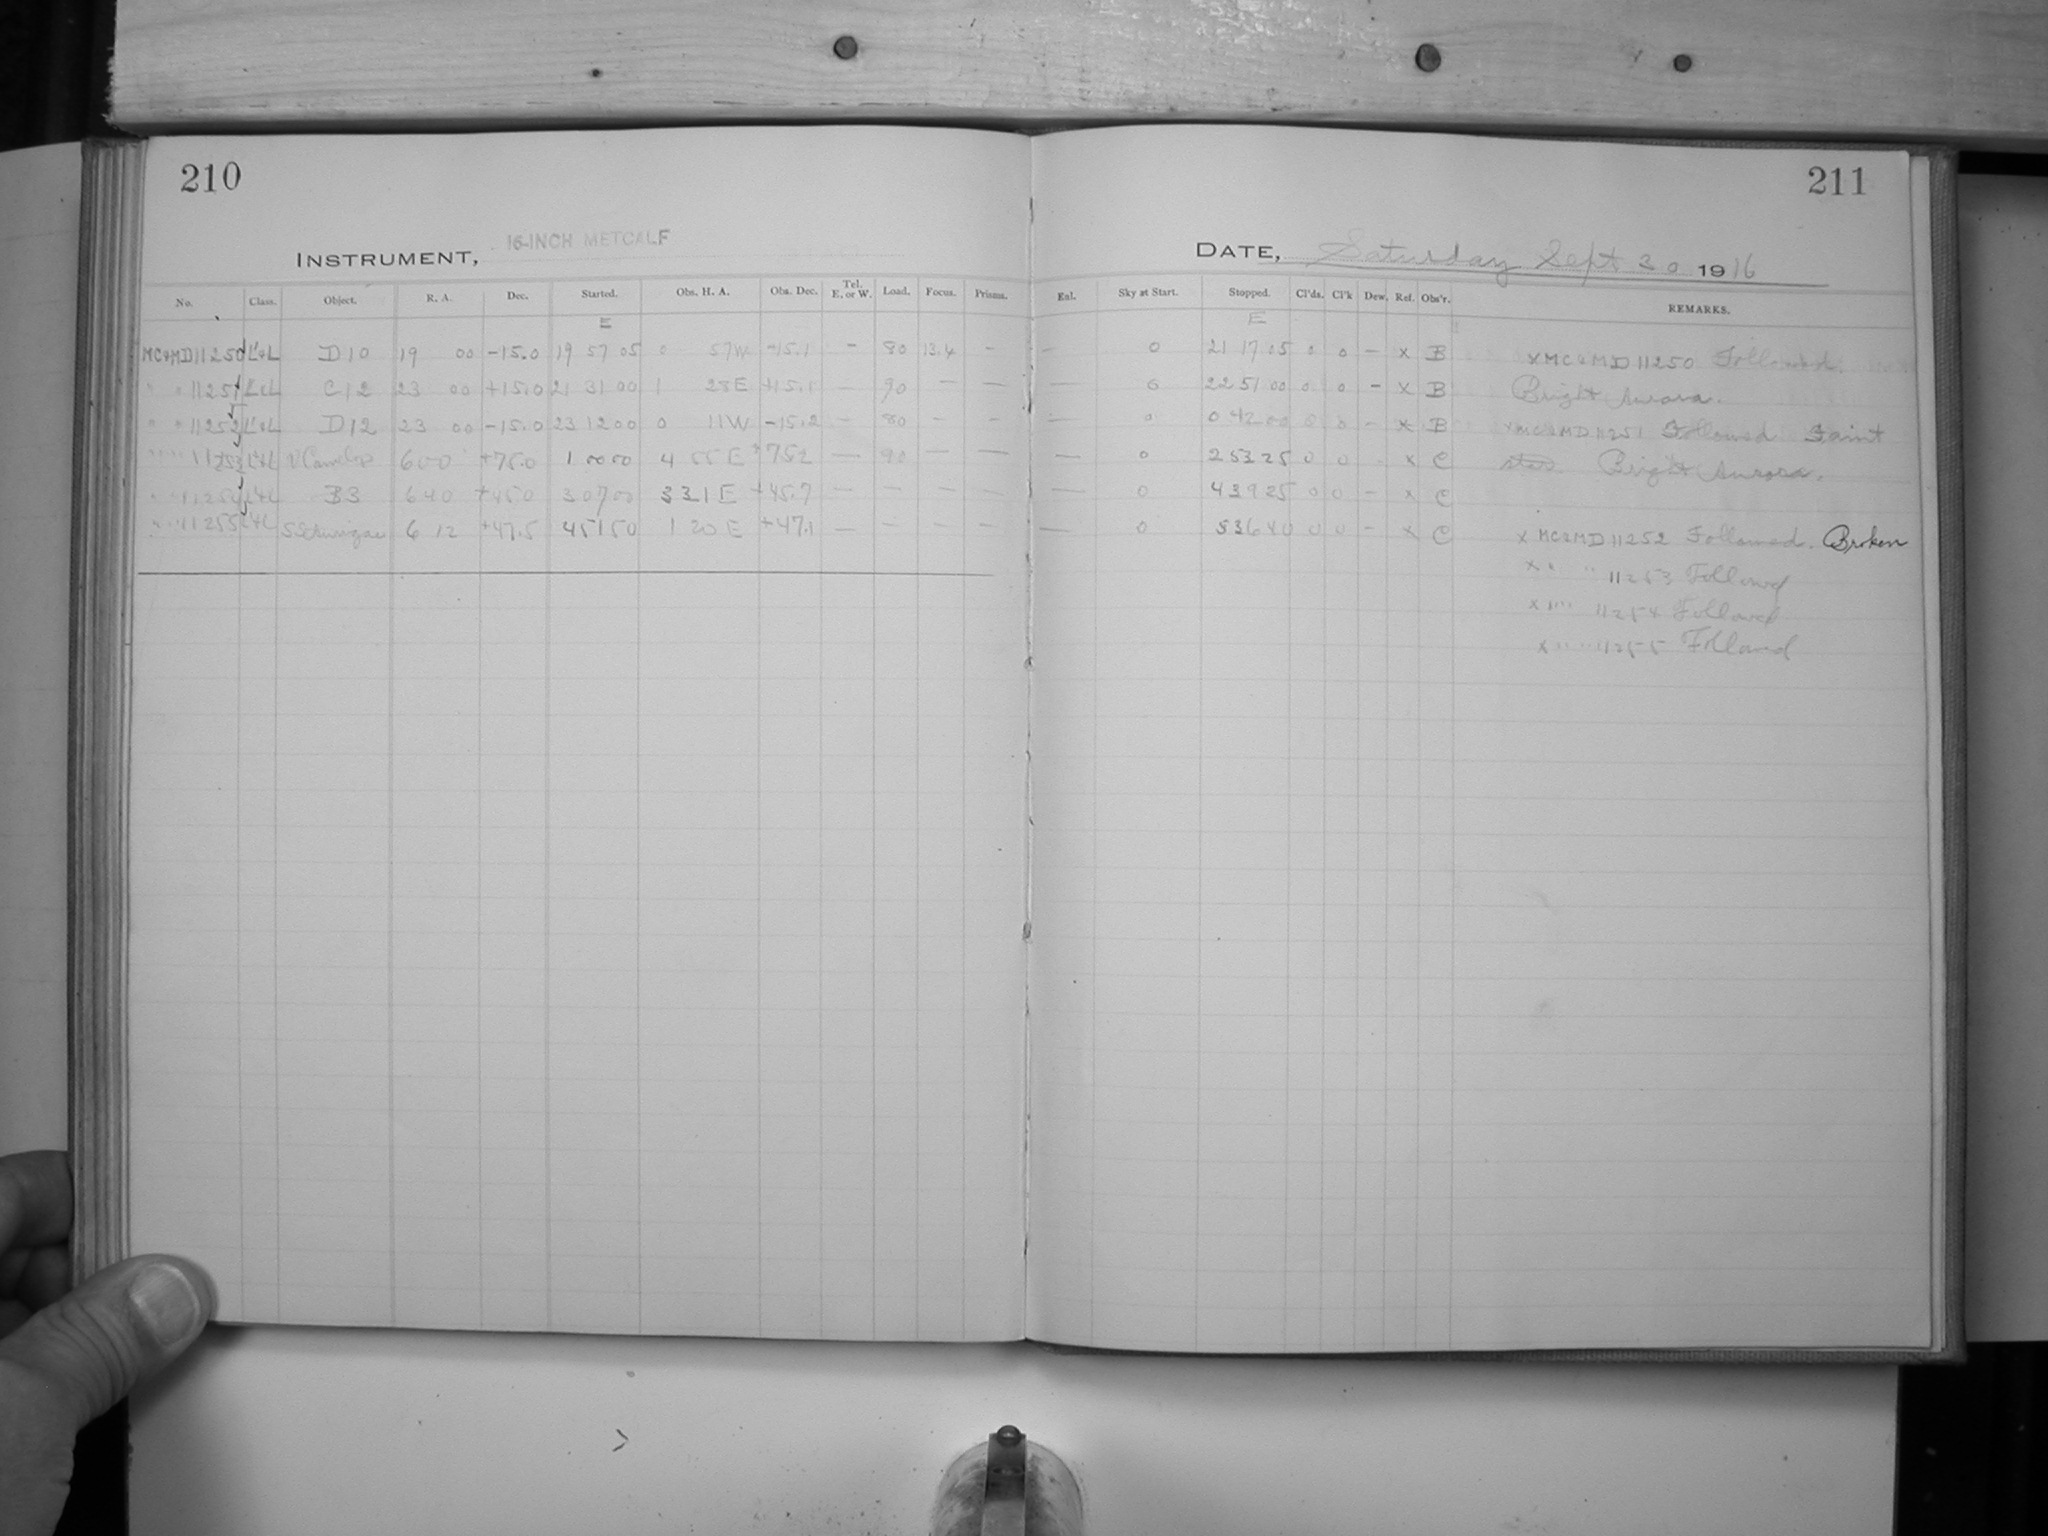 210
INSTRUMENT, 16-INCH METCALF
No. Class. Object. R. A. Dec. Started. Obs. H. A. Obs. Dec. Tel. E. or W. Load. Focus. Prisms.
E
MC&MD11250 L&L D10 19 00 -15.0 19 57 05 0 57W -15.1 - 80 13.4 -
" " 11251 L&L C12 23 00 +15.0 21 31 00 1 28E +15.1 — 90 — —
" " 11252 L&L D12 23 00 -15.0 23 12 00 0 11W -15.2 — 80 - -
" " 11253 L&L V Camelop 6 00 +75.0 1 00 00 4 55 E +75.2 — 90 — —
" " 11254 L&L B3 6 40 +45.0 3 07 00 3 31 E +45.7 — — — —
" " 11255 L&L 6 12 +47.5 4 51 50 1 20 E +47.1 — — — —
211
DATE, Saturday Sept 30 1916
Exl. Sky at Start. Stopped. Cl'ds. Cl'k Dew. Ref. Obs'r. REMARKS.
E
— 0 21 17 05 0 0 — x B x MC&MD11250 Followed.
— 0 22 51 00 0 0 - x B Bright Aurora.
— 0 0 42 00 0 0 - x B x MC&MD11251 Followed Faint
— 0 2 53 25 0 0 - x C star Bright Aurora.
— 0 4 39 25 0 0 - x C
— 0 5 36 40 0 0 - x C x MC&MD11252 Followed. Broken
x " " 11253 Followed
x " " 11254 Followed
x " " 11255 Followed